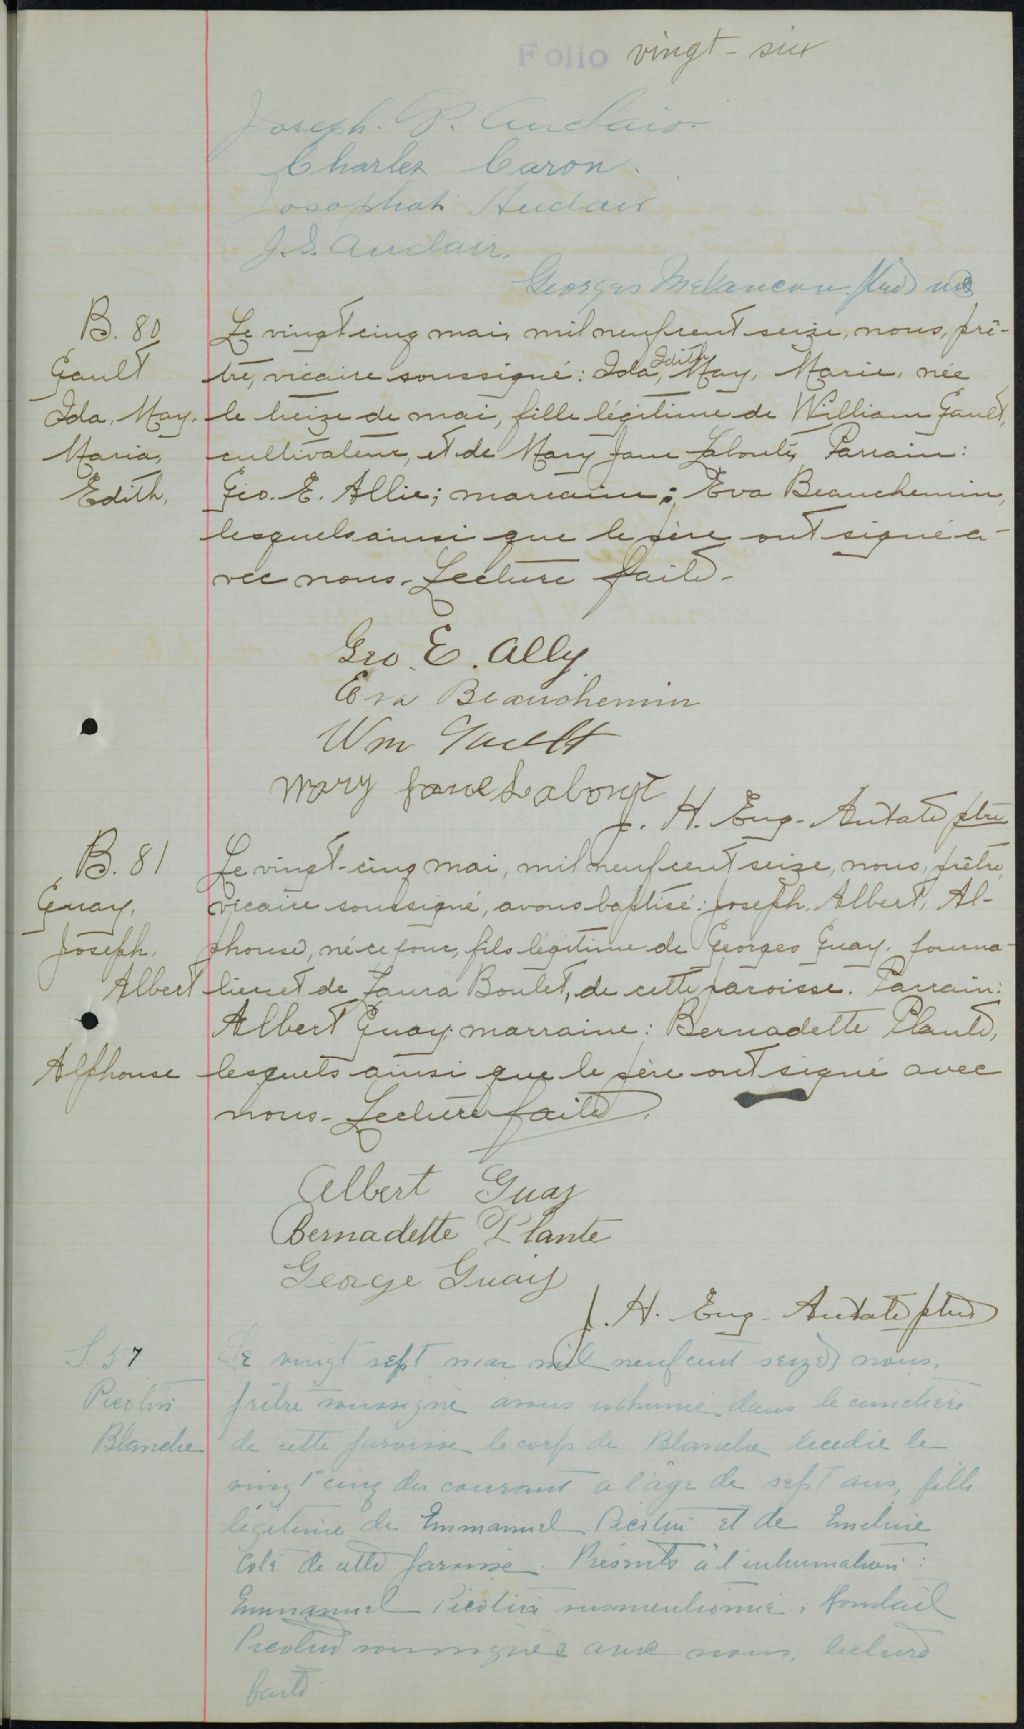 Folio vingt-six
Joseph. P. Auclair.
Charles Caron.
Josaphat Auclair
J.S. Auclair.
Georges Melancon, ptre
B. 80
Gault
Ida. May.
Maria,
Edith.
Le vingt cinq mai, mil neuf cent seize, nous, prê-
tre, vicaire soussigné: Ida, Edith, May, Marie, née
le treize de mai, fille légitime de William Gault,
cultivateur, et de Mary Jane Labonté, Parrain:
Geo. E. Allie; marraine: Eva Beauchemin,
lesquels ainsi que le père ont signé a-
vec nous. Lecture faite.
Geo. E. Ally
Eva Beauchemin
Wm Gault
Mary Jane Labonyt
J. H. Eug. Autate ptre
B. 81
Guay,
Joseph.
Albert
Alphonse
Le vingt-cinq mai, mil neuf cent seize, nous, prêtre,
vicaire soussigné, avons baptisé: Joseph, Albert, Al-
phonse, né ce jour, fils légitime de Georges Guay, journa-
lier et de Laura Boulet, de cette paroisse. Parrain:
Albert Guay; marraine: Bernadette Plante,
lesquels ainsi que le père ont signé avec
nous. Lecture faite.
Albert Guay
Bernadette Plante
George Guay
J. H. Eug. Autate ptre
S. 57
Picotin
Blanche
Le vingt sept mai mil neuf cent seize nous,
prêtre soussigné avons inhumé dans le cimetière
de cette paroisse le corps de Blanche decedée le
vingt cinq du courant a l'âge de sept ans, fille
légitime de Emmanuel Picotin et de Emelina
Coté de cette paroisse. Présents à l'inhumation:
Emmanuel Picotin susmentionné;
Picotin soussignés avec nous, lecture
faite.